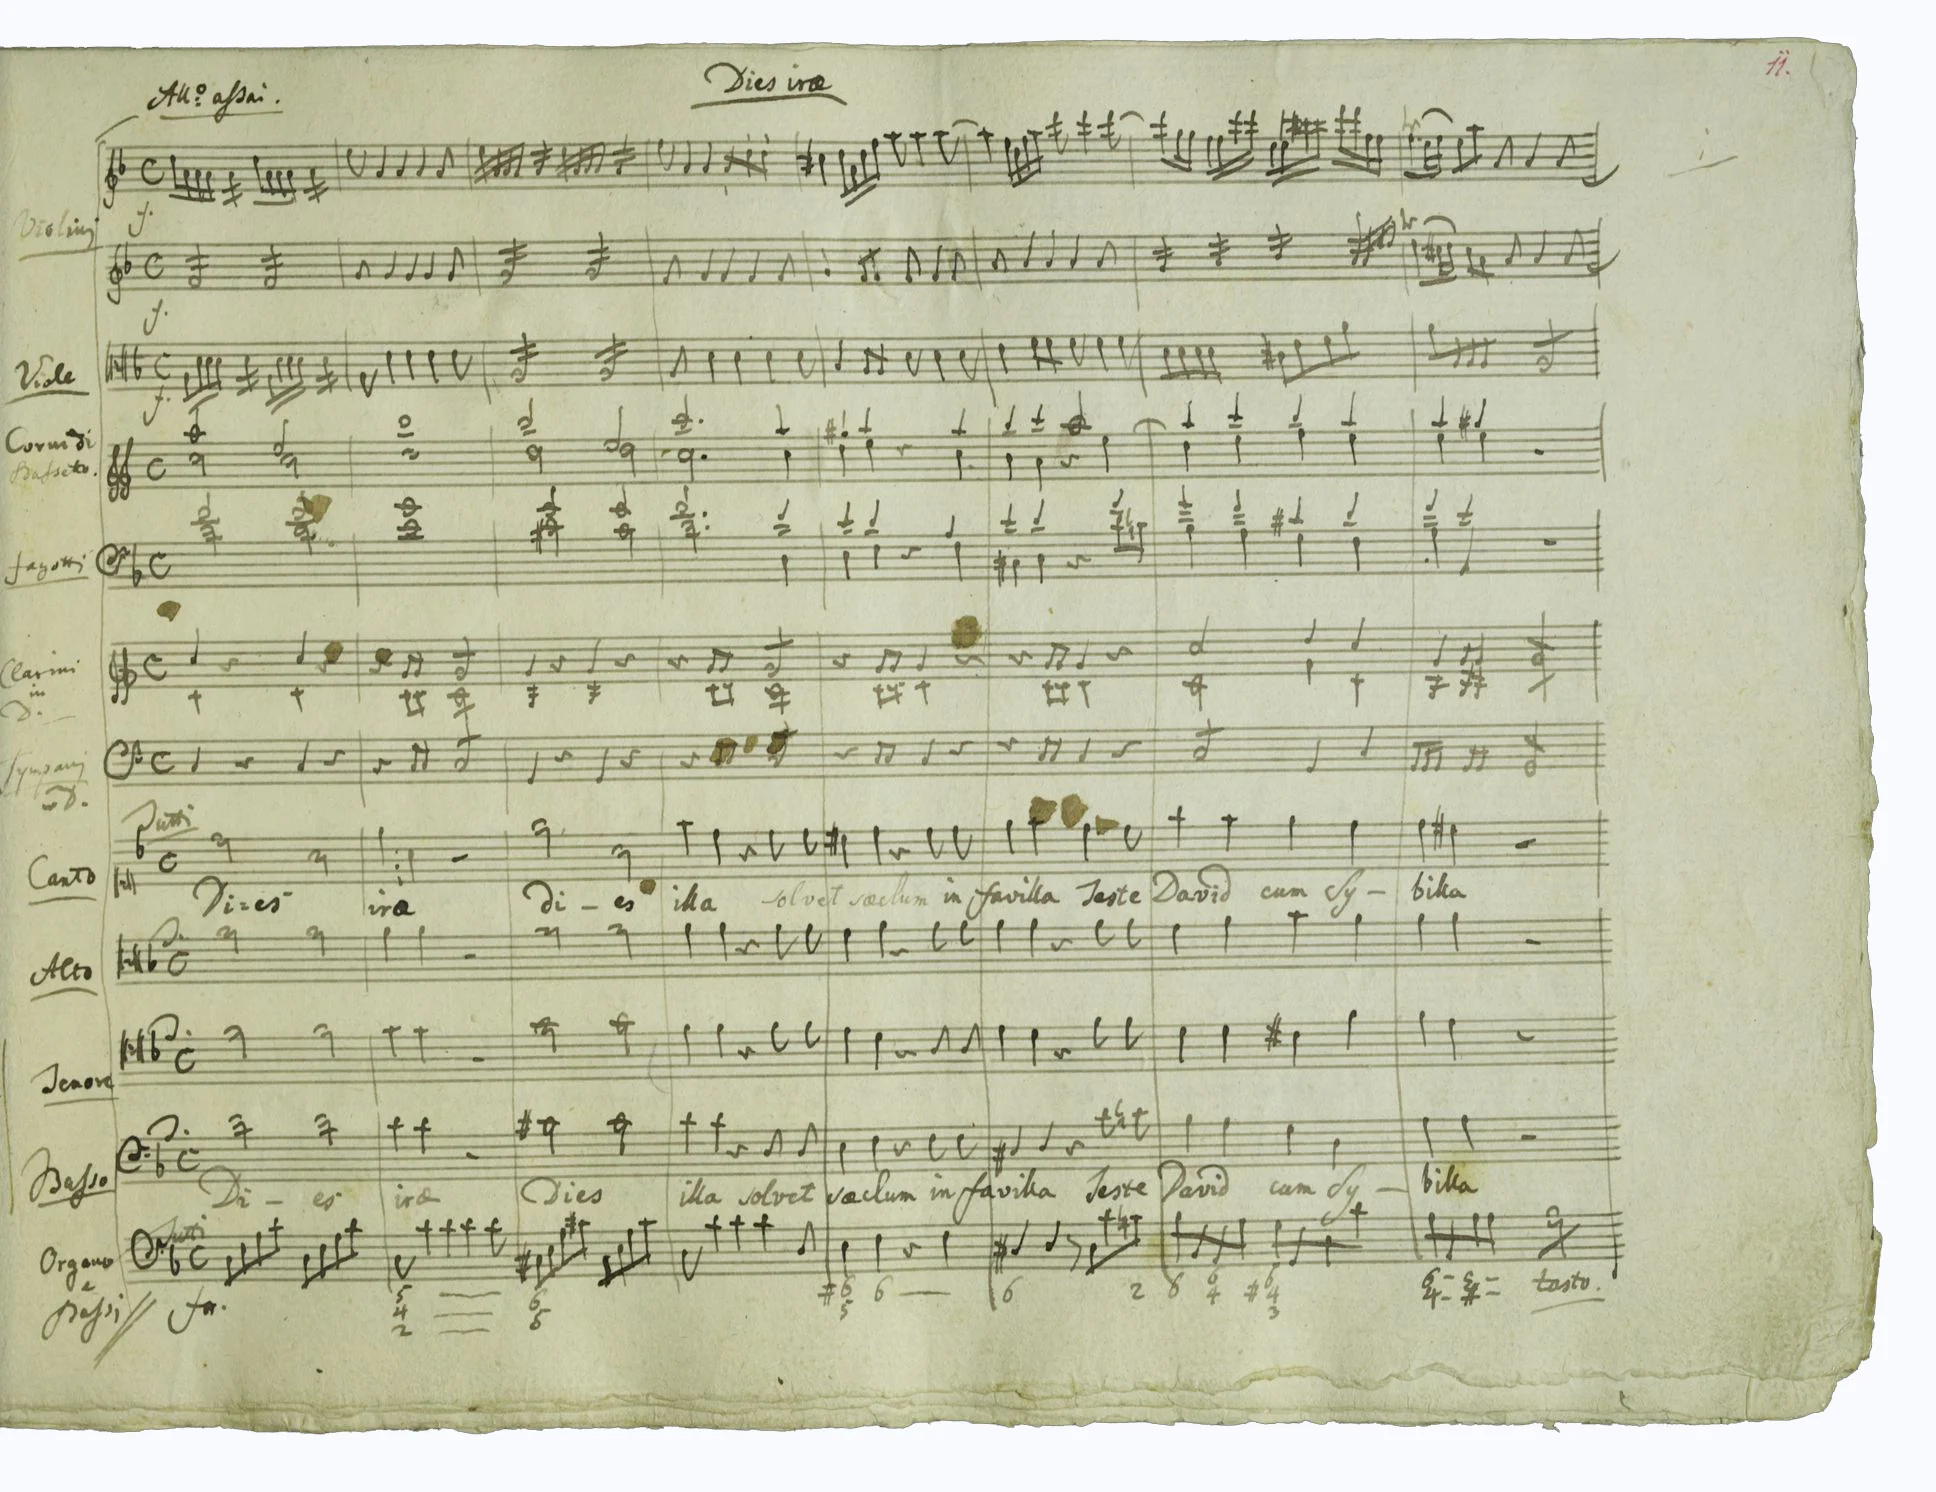 11.
All:o assai.
Dies iræ
Violinj
f.
f.
Viole
f.
Corni di
Bassetto.
fagotti
Clarini
in
D.
Tympanj
in D.
Tutti
Canto
Di=es iræ Di – es illa solvet sæclum in favilla Teste David cum Sy – billa
Alto
Tenore
Basso
Di – es iræ Dies illa solvet sæclum in favilla Teste David cum Sy – billa
Tutti
Organo
e
Bassi
for.
5 4 2
6 5
# 6 5
6
6
2
6
6 4
# 6 4 3
6 – 5 –
4 – # –
tasto.